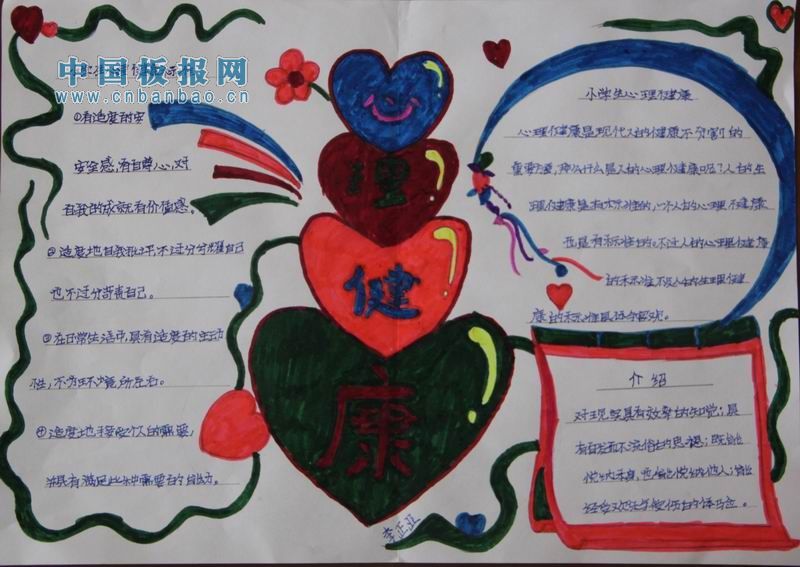 中国板报网
www.cnbanbao.cn
①有适度的安
安全感,有自尊心,对
自我的成就有价值感。
②适度地自我批评,不过分夸耀自己
也不过分苛责自己。
③在日常生活中,具有适度的主动
性,不为环境所左右。
④适度地接受个人的需要,
并具有满足此种需要的能力。
理
健
康
李正
小学生心理健康
心理健康是现代人的健康不可分割的
重要方面,那么什么是人的心理健康呢?人的生
理健康是有标准的,一个人的心理健康
也是有标准的。不过人的心理健康
的标准不及人的生理健康
康的标准具体与客观。
介绍
对现实具有效率的知觉;具
有自发而不流俗的思想;既能
悦纳本身,也能悦纳他人;